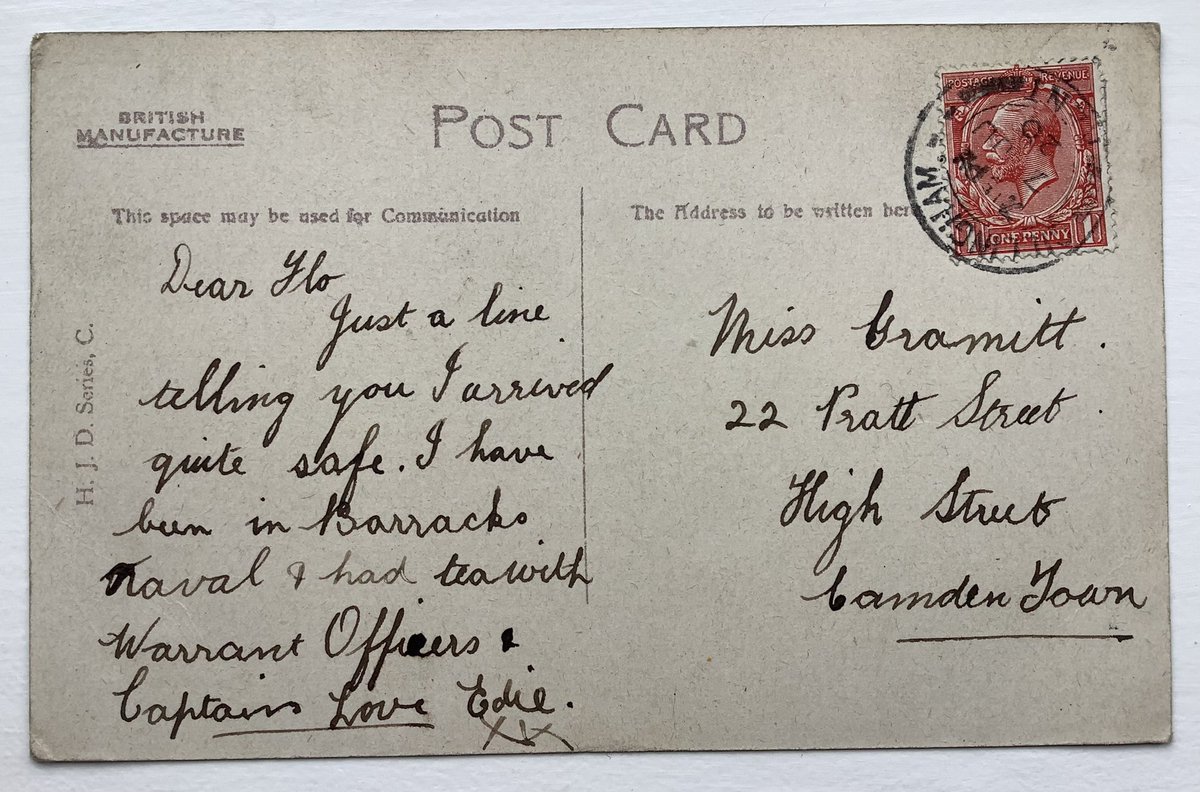 BRITISH
MANUFACTURE
POST CARD
This space may be used for Communication
The Address to be written her
H. J. D. Series, C.
POSTAGE REVENUE
1 ONE PENNY 1
Dear Flo
Just a line
telling you I arrived
quite safe. I have
been in Barracks
Naval & had tea with
Warrant Officers &
Captains Love Edie.
XXX
Miss Gramitt.
22 Pratt Street.
High Street
Camden Town